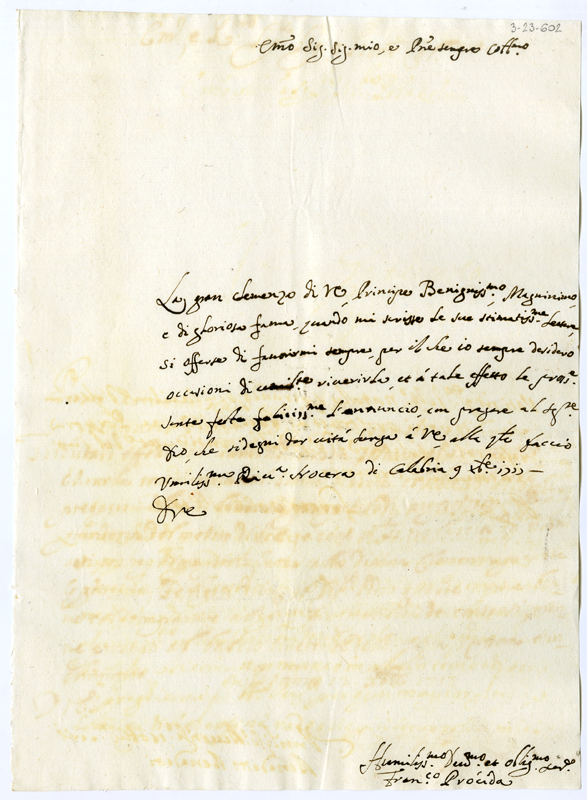 3-23-602
Em̃o Sig. Sig. mio, e Pñe sempre Coll.mo
La gran clemenza di Ve, Principe Benigniss.mo, Magnanimo,
e di gloriosa fama, quando mi scrisse le sue stimatiss.me lettere,
si offerse di favorirmi sempre, per il che io sempre desidero
occasioni di riverirla, et à tale effetto le pross.e
sante feste feliciss.me l'annuncio, con pregare al Sig.re
Dio, che si degni dar vita lunga à Ve, alla q̃le faccio
Umiliss.ma Nocera di Calabria 9 Xb̃re
Di Ve
Humiliss.mo Dev.mo et oblig.mo Ser.e
Fran.co Procida